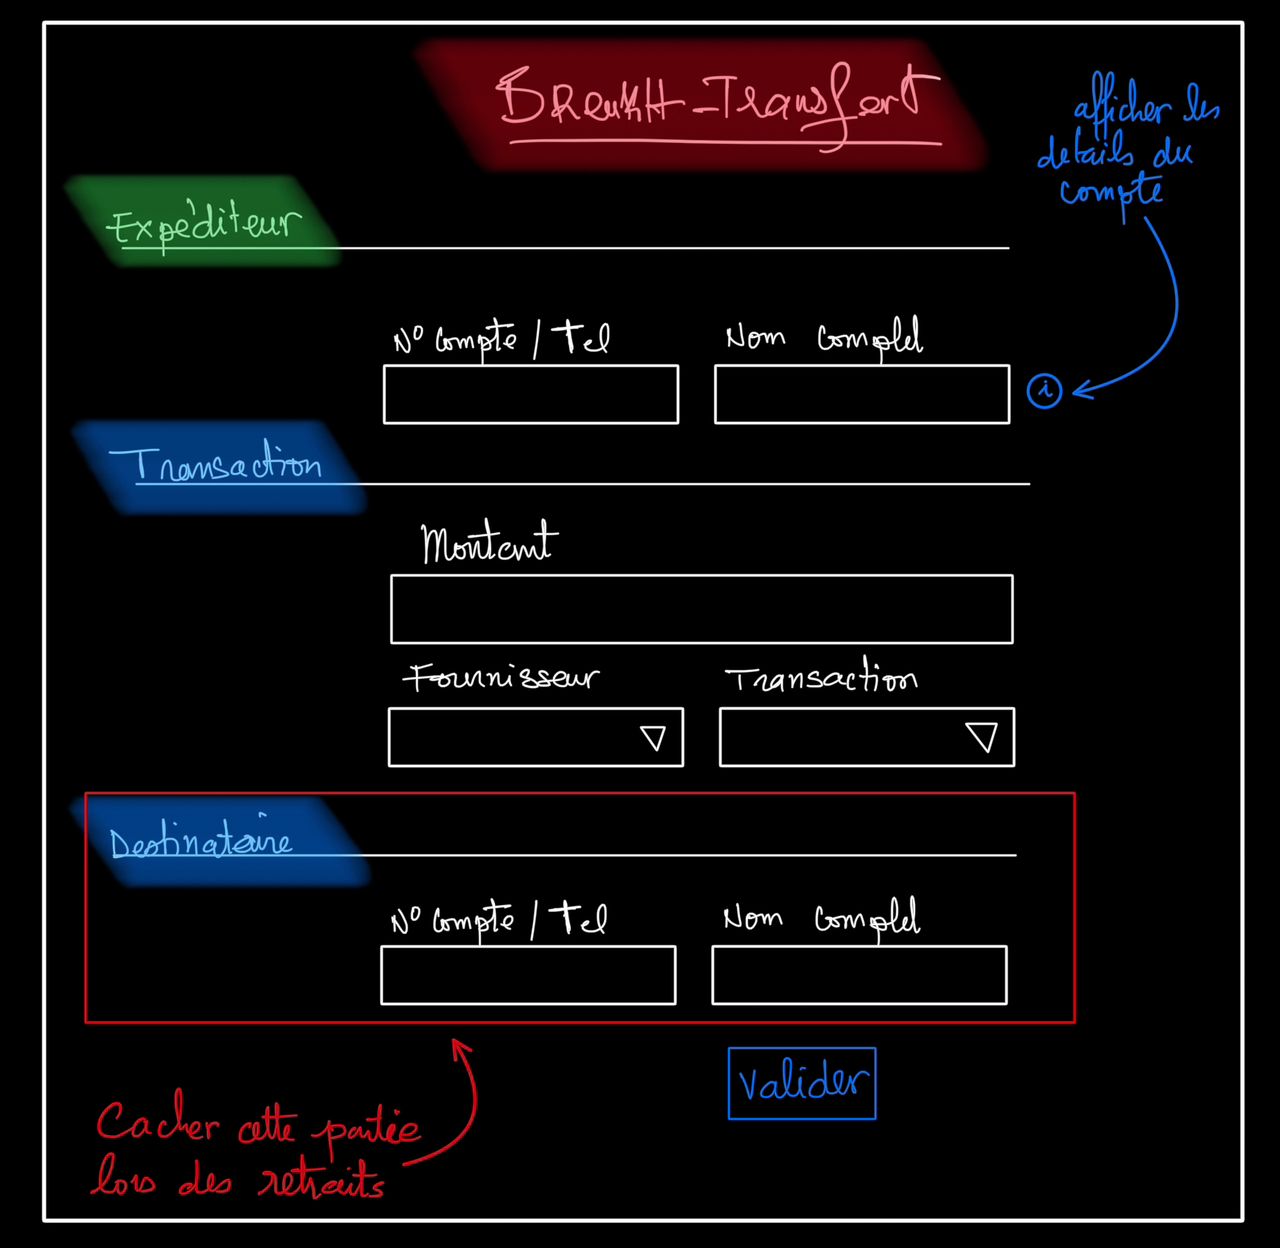 BReukH-Transfert
afficher les
details du
compte
Expéditeur
N° Compte / Tel
Nom Complet
i
Transaction
Montant
Fournisseur
Transaction
Destinataire
N° Compte / Tel
Nom Complet
Valider
Cacher cette partie
lors des retraits